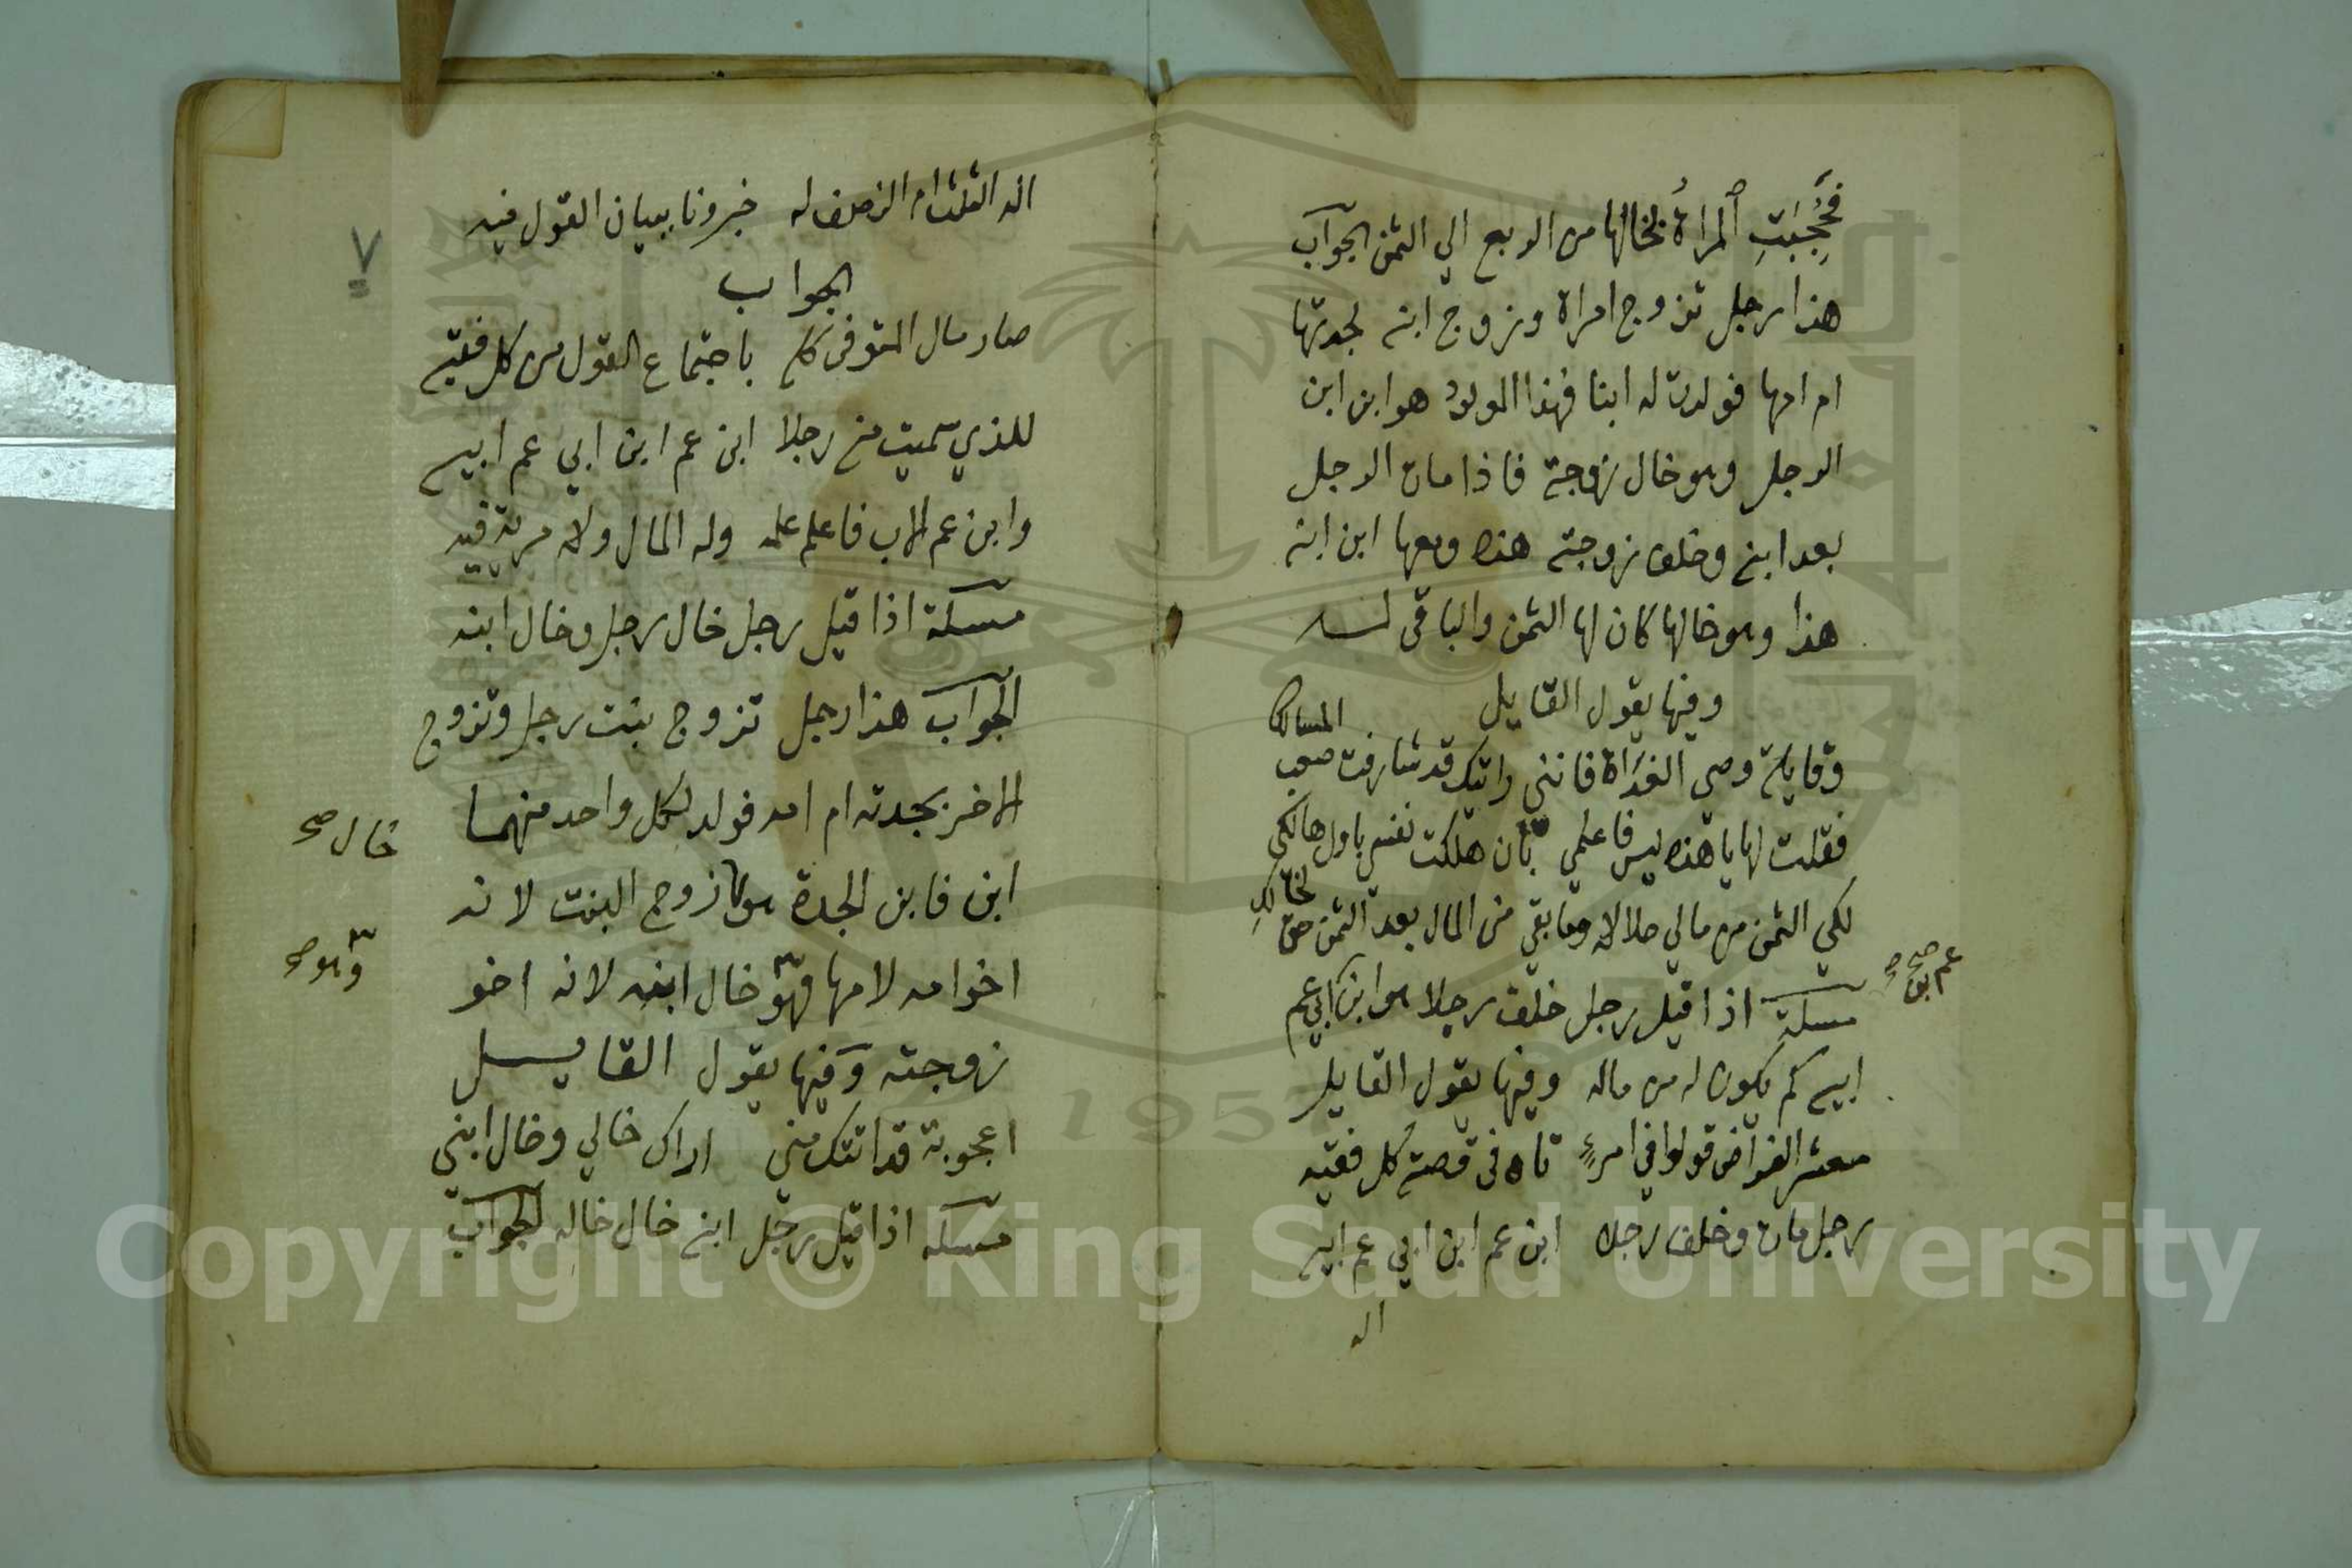 فَحُجِبَتِ ٱلمراةُ بخالها من الربع الي الثمن الجواب
هذا رجل تزوج امراة وزوج ابنه لجدتها
ام امها فولدت له ابنا فهذا المولود هو ابن ابن
الرجل وهو خال زوجته فاذا مات الرجل
بعد ابنه وخلف زوجته هذه ومعها ابن ابنه
هذا وهو خالها كان لها الثمن والباقي له
وفيها يقول القايل
وقايلة وصي الغداة فانني راتيك قد شارفت صعب المسالكا
فقلت لها يا هذه ليس فاعلمي بان هلكت نفسي باول هالكي
لكي الثمن من مالي حلالا وما بقي من المال بعد الثمن حق لخالكِ
مسلة اذا قيل رجل خلف رجلا هو ابن ابي عم
عم ابن صح
ابيه كم يكون له من ماله وفيها يقول القايل
معشر الفراض قولوا في امرءٍ تاه في قصته كل فقيه
رجل مات وخلف رجلا ابن عم ابن ابي عم ابيه
اله
اله الثلث ام النصف له خبرونا ببيان القول فيه
٧
الجواب
صار مال المتوفى كله باجتماع القول من كل فقيه
للذي سميت من رجلا ابن عم ابن ابي عم ابيه
وابن عم الاب فاعلم علمه وله المال ولا مرية فيه
مسئلة اذا قيل رجل خال رجل وخال ابنه
الجواب هذا رجل تزوج بنت رجل وتزوج
الاخر بجدته ام امه فولد لكل واحد منهما
خال صح
ابن فابن الجدة هو زوج البنت لانه
اخو امه لامها فهو خال ابنه لانه اخو
وهو صح
زوجته وفيها يقول القايل
اعجوبة قد اتتك مني اراك خالي وخال ابني
مسئله اذا قيل رجل ابنه خال خاله الجواب
Copyright © King Saud University
1957